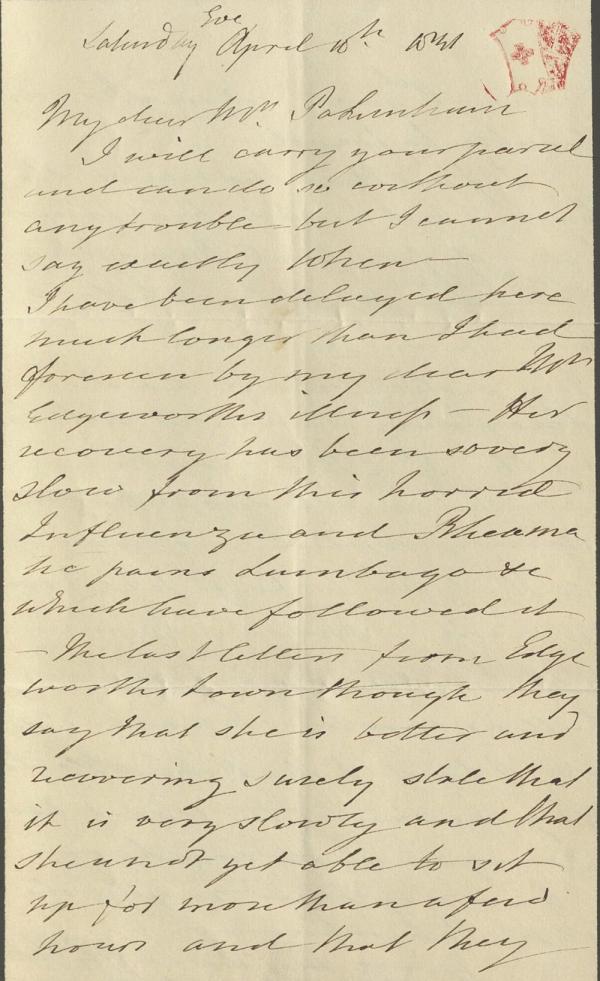 Saturday Eve April 10th 1841
My dear Mrs Pakenham
I will carry your parcel
and can do so without
any trouble – but I cannot
say exactly when –
I have been delayed here
much longer than I had
foreseen by my dear Mrs
Edgeworths illness – Her
recovery has been so very
slow from this horrid
Influenza and Rheuma
tic pains Lumbago &c
which have followed it
– The last letters from Edge
worths town though they
say that she is better and
recovering surely state that
it is very slowly and that
she is not yet able to sit
up for more than a few
hours and that they